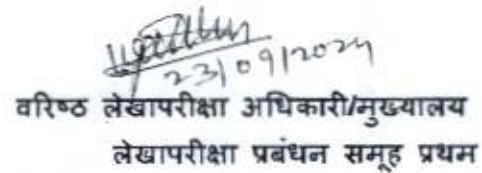 23/09/2024
वरिष्ठ लेखापरीक्षा अधिकारी/मुख्यालय
लेखापरीक्षा प्रबंधन समूह प्रथम